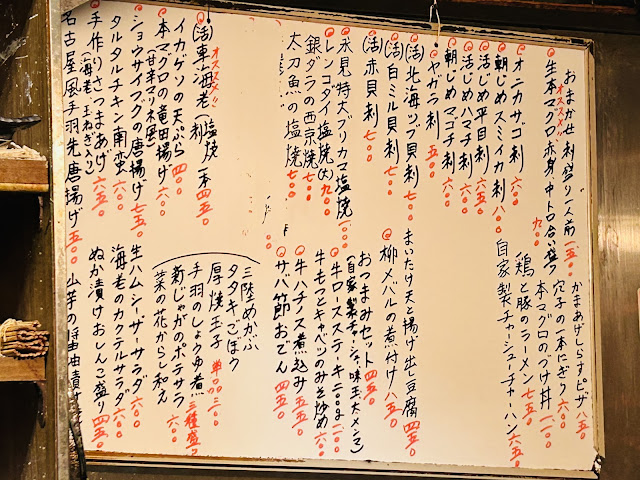 おまかせ刺盛り一人前 一、五〇〇
オススメ!!
生本マグロ赤身・中トロ合い盛り 九〇〇
オニカサゴ刺 六〇〇
朝じめスミイカ刺 八〇〇
活じめ平目刺 六五〇
活じめハマチ刺 六〇〇
朝じめマゴチ刺 六〇〇
ヤガラ刺 五〇〇
(活)北海ツブ貝刺 七五〇
(活)白ミル貝刺 七〇〇
(活)赤貝刺 七〇〇
氷見特大ブリカマ塩焼 一、〇〇〇
レンコダイ塩焼(大) 九〇〇
銀ダラの西京焼 七〇〇
太刀魚の塩焼 七〇〇
オススメ!!
(活)車海老(塩焼・刺) 一本 四五〇
イカゲソの天ぷら 四〇〇
本マグロの竜田揚げ 六〇〇
(甘辛マリネ風)
ショウサイフグの唐揚げ 七五〇
タルタルチキン南蛮 六〇〇
手作りさつまあげ 六五〇
(海老・玉ねぎ入り)
名古屋風手羽先唐揚げ 五〇〇
かまあげしらすピザ 八五〇
穴子の一本にぎり 六〇〇
本マグロのづけ丼 一、一〇〇
鶏と豚のラーメン 七五〇
自家製チャーシューチャーハン 六五〇
まいたけ天と揚げ出し豆腐 四五〇
柳メバルの煮付け 八五〇
おつまみセット 四五〇
(自家製チャーシュー・味玉・大メンマ)
牛ロースステーキ200g 二、〇〇〇
牛もつとキャベツのみそ炒め 六〇〇
牛ハチノス煮込み 五五〇
サバ節おでん 四五〇
三陸めかぶ
タタキごぼう
厚焼玉子 単品 三〇〇
手羽のしょうゆ煮 三種盛り 六〇〇
新じゃがのポテサラ
菜の花からし和え
生ハムシーザーサラダ 六〇〇
海老のカクテルサラダ 六〇〇
ぬか漬けおしんこ盛り 四五〇
山芋の醤油漬